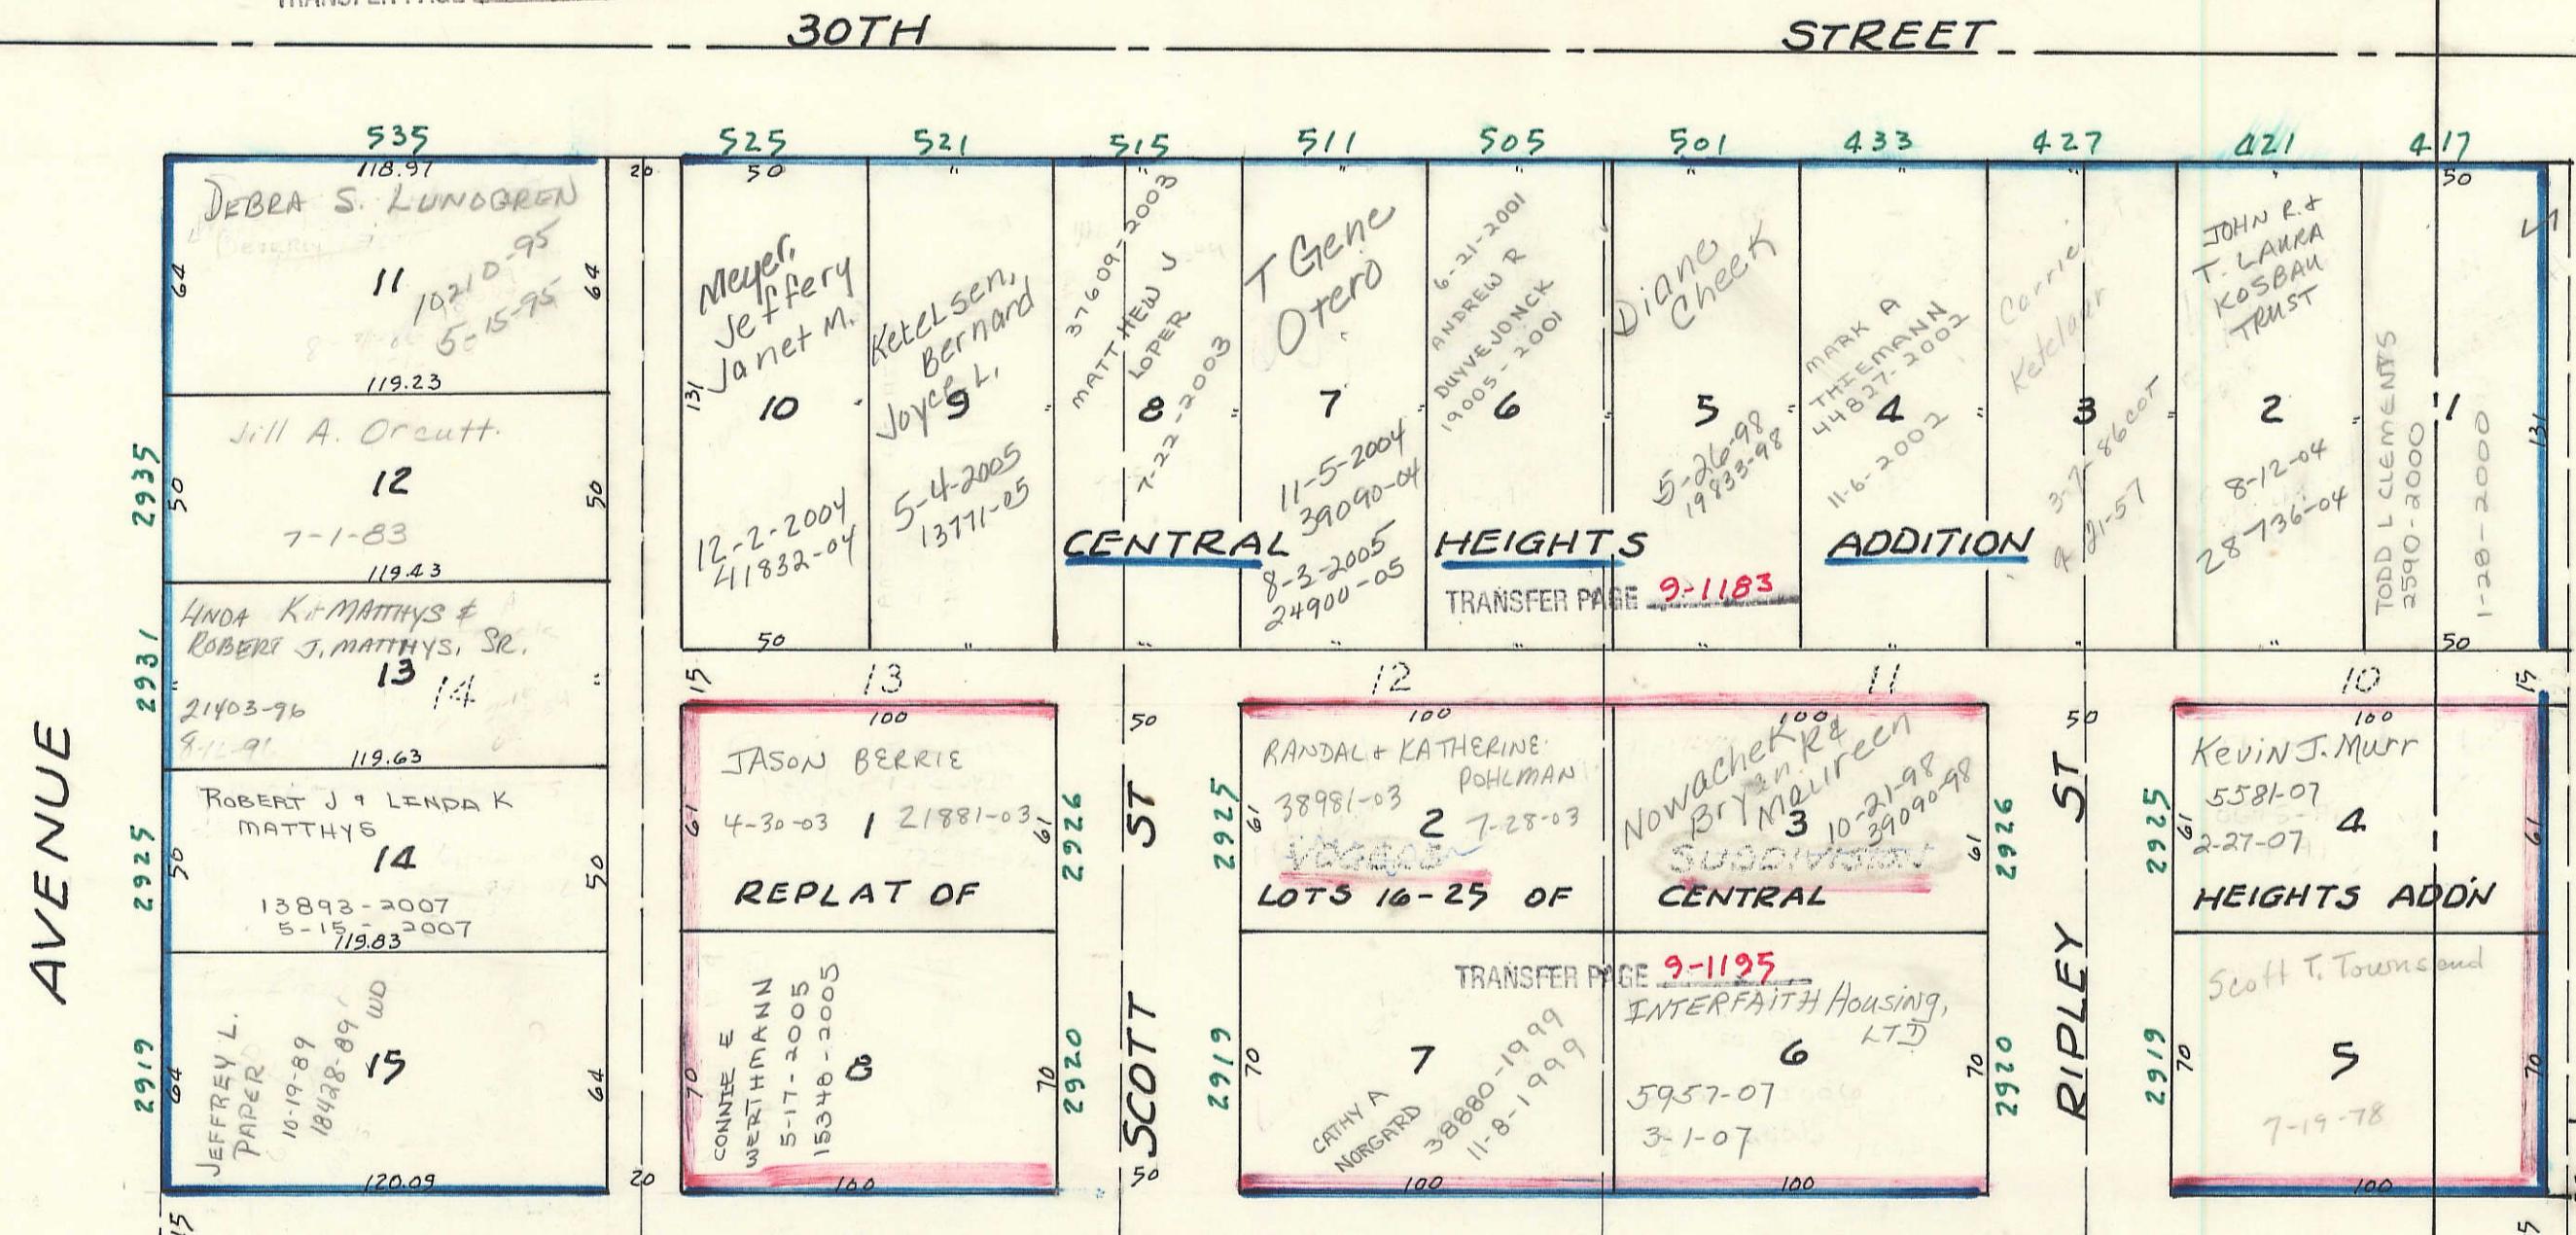 TRANSFER PAGE
30TH STREET
535 525 521 515 511 505 501 433 427 421 417
118.97
DEBRA S. LUNDGREN
11
10210-95
5-15-95
64 64
119.23
Jill A. Orcutt.
12
7-1-83
50 50
119.43
LINDA K. MATTHYS &
ROBERT J. MATTHYS, SR.
13
14
21403-96
" "
119.63
ROBERT J & LINDA K
MATTHYS
14
13893-2007
5-15-2007
50 50
119.83
JEFFREY L.
PAPER
10-19-89
18428-89
WD
15
64 64
120.09
2935
2931
2925
2919
AVENUE
15
20
20
50
Meyer,
Jeffery
Janet M.
131
10
12-2-2004
41832-04
50
"
Ketelsen,
Bernard
Joyce L.
9
5-4-2005
13771-05
"
"
37609-2003
MATTHEW J
LOPER
8
7-22-2003
"
"
T Gene
Otero
7
11-5-2004
39090-04
8-3-2005
24900-05
"
"
6-21-2001
ANDREW R
DUYVEJONCK
19005-2001
6
"
"
Diane
Cheek
5
5-26-98
19833-98
"
"
MARK A
THIEMANN
44827-2002
4
11-6-2002
"
Carrie
Ketelaar
3
3-7-86 COT
21-57
"
"
JOHN R. &
T. LAURA
KOSBAU
TRUST
2
8-12-04
28736-04
"
50
TODD L CLEMENTS
2590-2000
1
1-28-2000
131
50
CENTRAL HEIGHTS ADDITION
TRANSFER PAGE 9-1183
15 13 12 11 10 15
100
JASON BERRIE
4-30-03 1 21881-03
61 61
REPLAT OF
CONNIE E
WERTHMANN
5-17-2005
15348-2005
8
70 70
100
2926
2920
50
SCOTT ST
50
2925
2919
100
RANDAL & KATHERINE
POHLMAN
38981-03
2 7-28-03
61
LOTS 16-25 OF
TRANSFER PAGE 9-1195
70
7
CATHY A
NORGARD
38880-1999
11-8-1999
100
100
Nowachek
Bryan R &
Maureen
3
10-21-98
39090-98
61
SUBDIVISION
CENTRAL
INTERFAITH Housing,
LTD
6
70
5957-07
3-1-07
100
2926
2920
50
RIPLEY ST
2925
2919
100
Kevin J. Murr
5581-07
2-27-07
4
61 61
HEIGHTS ADD'N
Scott T. Townsend
5
70 70
7-19-78
100
15